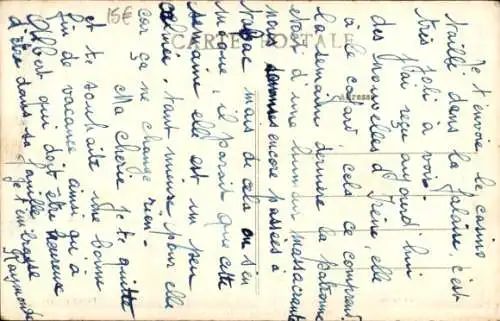 15€
CARTE POSTALE
Adresse
Je t'envoie le casino
taillé dans la falaise, c'est
très joli à voir.
J'ai reçu aujourd'hui
des nouvelles d'Irène, elle
a le cafard cela se comprend
la semaine dernière la patronne
était d'une humeur massacrante
nous sommes encore passées à
tabac mais de cela on s'en
moque, il paraît que cette
semaine elle est un peu
calmée. tant mieux pour elle
car ça ne change rien.
Ma chérie je te quitte
et te souhaite une bonne
fin de vacances ainsi qu'à
Albert qui doit être heureux
d'être dans sa famille
Je t'embrasse
Raymonde